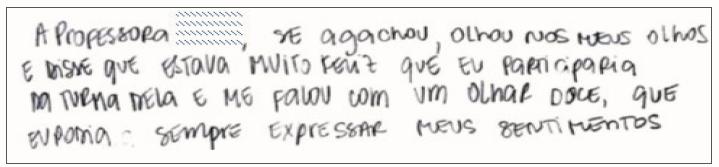 A PROFESSORA , SE agachou, olhou nos meus olhos
E DISSE QUE ESTAVA MUITO FELIZ QUE EU PARTICIPARIA
DA TURMA DELA E ME FALOU COM UM OLHAR DOCE, QUE
EU PODIA SEMPRE EXPRESSAR MEUS SENTIMENTOS